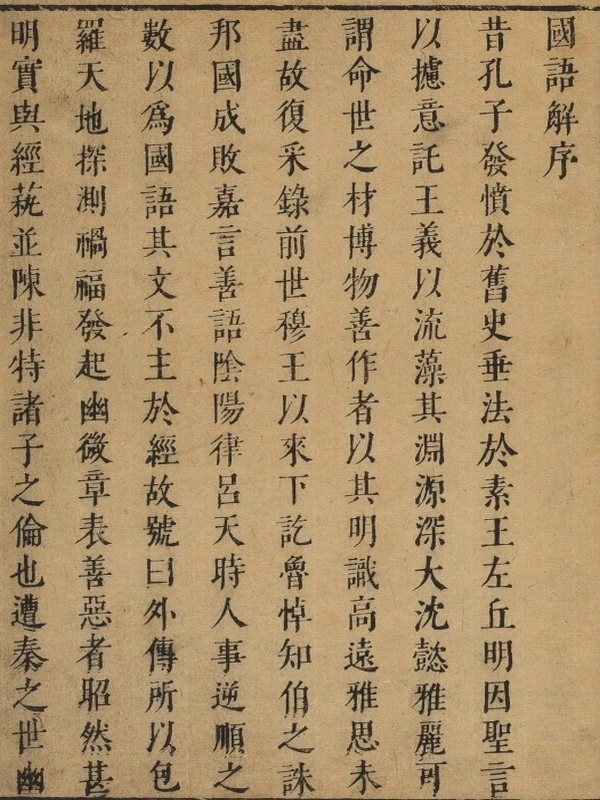 國語解序
昔孔子發憤於舊史垂法於素王左丘明因聖言
以攄意託王義以流藻其淵源深大沈懿雅麗可
謂命世之材博物善作者以其明識高遠雅思未
盡故復采錄前世穆王以來下訖魯悼知伯之誅
邦國成敗嘉言善語陰陽律呂天時人事逆順之
數以爲國語其文不主於經故號曰外傳所以包
羅天地探測禍福發起幽微章表善惡者昭然甚
明實與經蓺並陳非特諸子之倫也遭秦之世幽